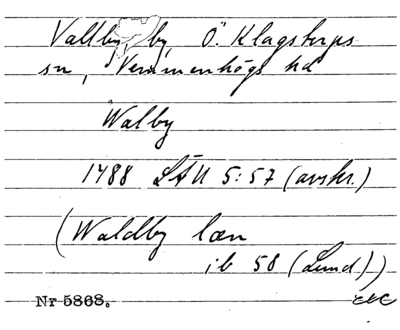 Vallby by, Ö. Klagstorps
sn, Vemmenhögs hd
Walby
1488 LÄU 5:57 (avskr.)
(Waldby læn
ib 58 (Lund.))
Nr 5868.